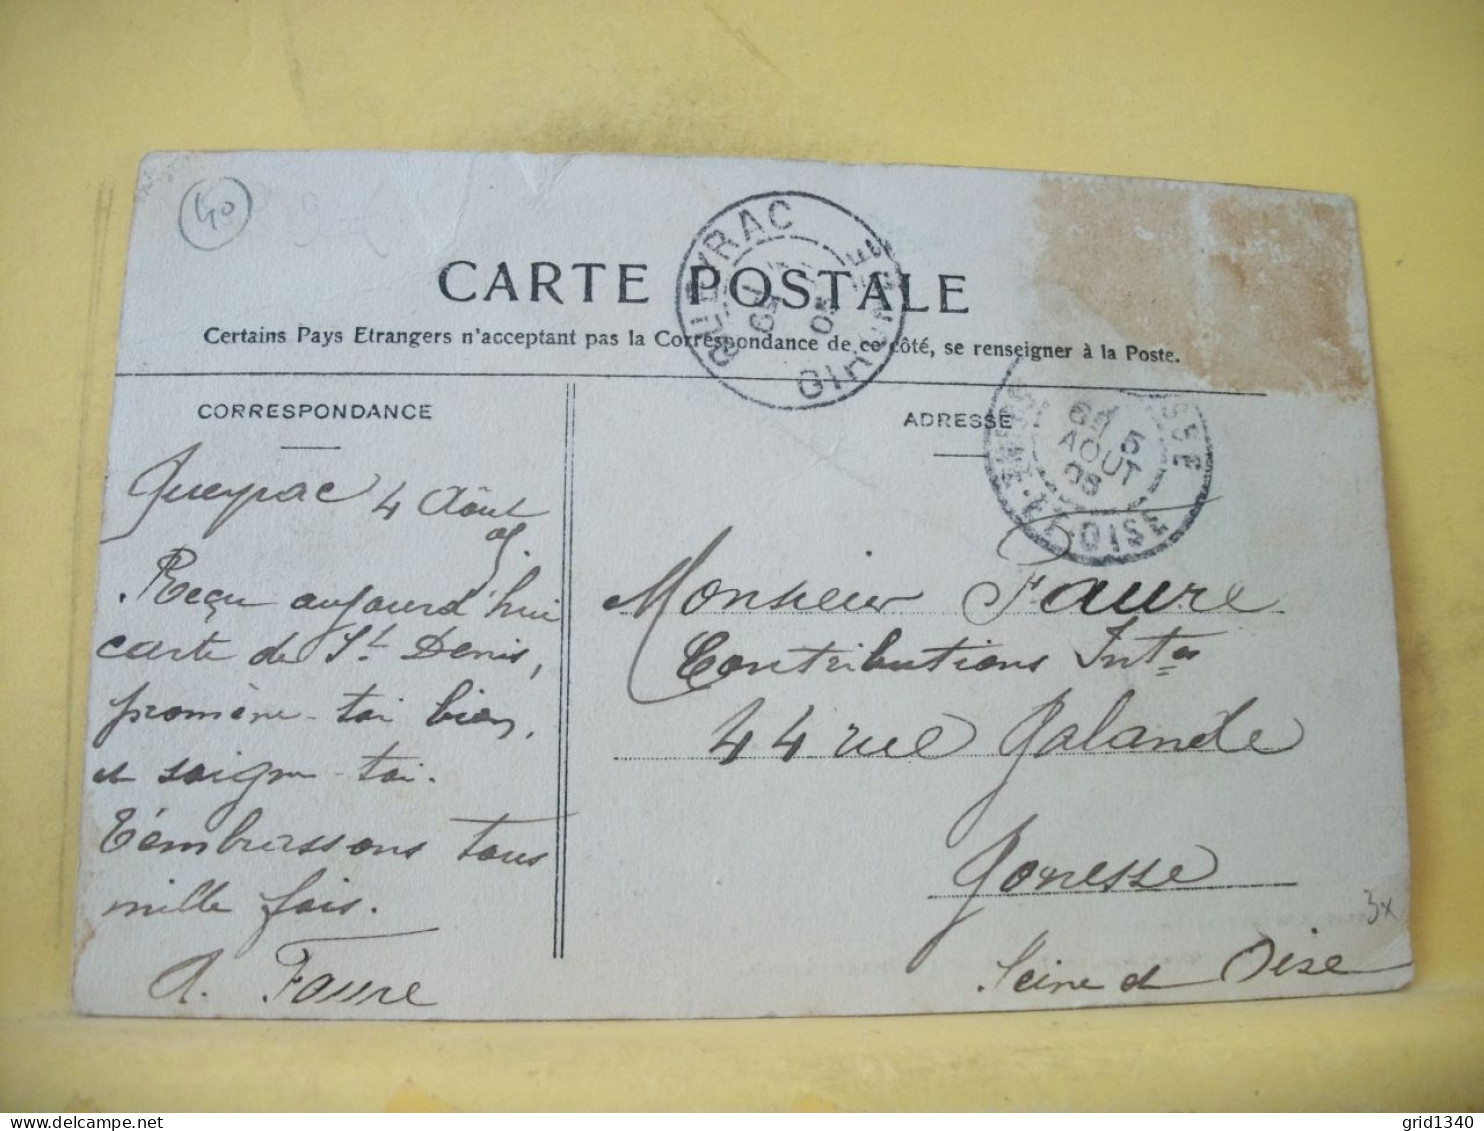 40
CARTE POSTALE
Certains Pays Etrangers n'acceptant pas la Correspondance de ce côté, se renseigner à la Poste.
QUEYRAC
05
GIRONDE
CORRESPONDANCE
Queyrac 4 Août
05
Reçu aujourd'hui
carte de St Denis,
promène-toi bien,
et soigne-toi.
T'embrassons tous
mille fois.
A. Faure
ADRESSE
5
AOUT
05
SEINE-ET-OISE
Monsieur Faure
Contributions Intes
44 rue Galande
Gonesse
Seine et Oise
3x
grid1340